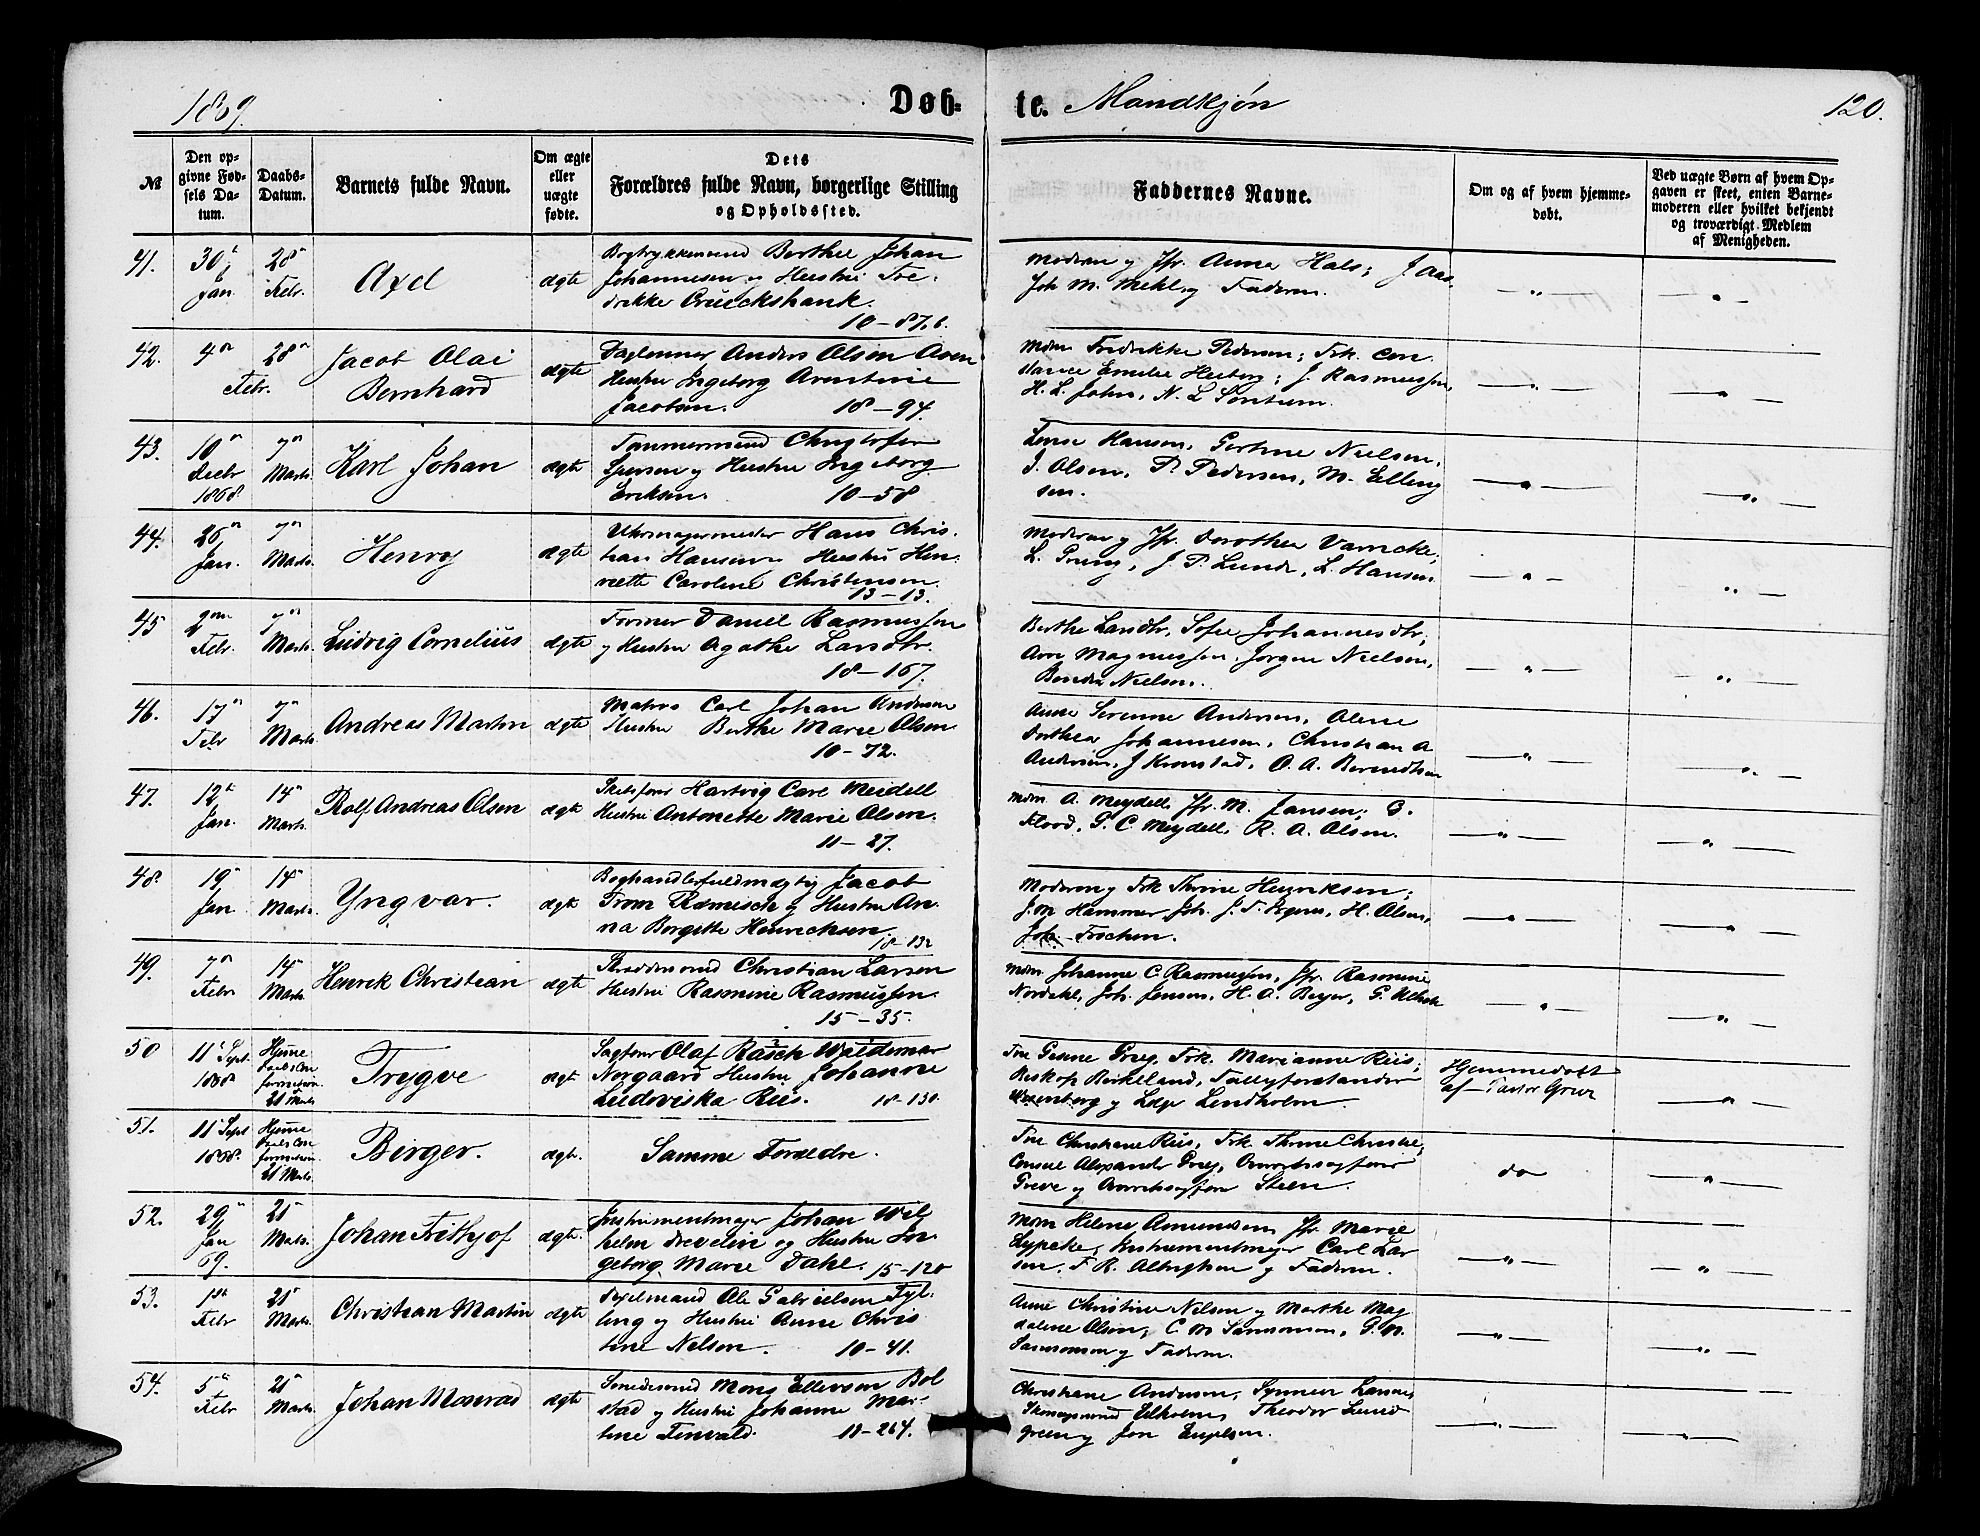 1869.
Døb-
te. Mandkjøn
120.
№
Den op-
givne Fød-
sels Da-
tum.
Daabs-
Datum.
Barnets fulde Navn.
Om ægte
eller
uægte
fødte.
Dets
Forældres fulde Navn, borgerlige Stilling
og Opholdssted.
Faddernes Navne.
Om og af hvem hjemme-
døbt.
Ved uægte Børn af hvem Op-
gaven er skeet, enten Barne-
moderen eller hvilket bekjendt
og troværdigt Medlem
af Menigheden.
41.
30
Jan.
28
Febr.
Axel
ægte
Berthel Johan
Johannesen og Hustru Fre-
drikke Cruickshank.
10-87.b.
Moderen og Jfr. Anna Hals; J. Aas
Joh M. Mehl og Faderen.
42.
4
Febr.
28
Jacob Olai
Bernhard
ægte
Daglønner Anders Olsen Aven
Hustru Ingeborg Arentine
Jacobsen. 18-94.
Mdm Fredrikke Pedersen; Frk. Con
stance Emilie Heiberg; J. Rasmussen,
H. L. John, N. L Sontum.
43.
10
Decbr
1868.
7
Marts.
Karl Johan
ægte
Tømmermand Christofer
Iversen og Hustru Ingeborg
Eriksen. 10-58
Hansen, Gertine Nielsen,
J. Olsen, P. Pedersen, M. Elling
sen.
44.
26
Jan.
7
Marts.
Henry
ægte
Uhrmagermester Hans Chris-
tian Hansen og Hustru Hen-
riette Caroline Christensen.
13-13.
Moderen og Jfr. Dorothea Varncke;
L. Pruny, J P. Lund, L. Hansen
45
2
Febr.
7
Marts.
Ludvig Cornelius
ægte
Former Daniel Rasmussen
og Hustru Agathe Larsdtr.
18-167.
Berthe Larsdtr, Sofie Johannesdtr;
Magnussen, Jørgen Nielsen,
Nielsen.
46.
17
Febr
7
Marts.
Andreas Martin
ægte
Matros Carl Johan Andersen
Hustru Berthe Marie Olsen
10-72.
Anne Serenne Andersen, Olene
Dorthea Johannesen, Christian A
Andersen, J Kronstad, O. A. Berendtsen
47.
12
Jan.
14
Marts.
Rolf Andreas Olsen
ægte
Skibsfører Hartvig Carl Meidell
Hustru Antonette Marie Olsen.
11-27.
Mdm. A. Meydell, Jfr. M. Jansen;
Flood, G. C. Meydell, R. A. Olsen.
48.
19
Jan
14
Marts.
Yngvar.
ægte
Boghandlerfuldmægtig Jacob
From Ræmisch og Hustru An-
na Borgitte Henrichsen
18-132
Moderen og Frk Thrine Henriksen;
J. M Hammer, Joh. J. F. H. Olsen,
Joh.
49.
7
Febr
14
Marts.
Henrik Christian
ægte
Skræddersvend Christian Larsen
Hustru Rasmine Rasmussen.
15-35.
Mdm. Johanne C. Rasmussen, Jfr. Rasmine
Nordahl, Joh. Jensen, H. A. Beyer, G.
50
11 Sept
1868.
Hjemme
Daabs Con
firmation.
21 Marts
Trygve
ægt
Sagfører Olaf Rasch Waldemar
Norgaard Hustru Johanne
Ludoviska Riis. 18-130.
Frue Grieg, Frk. Marianne Riis;
Biskop Birkeland, Toldforstander
og Læge Lindholm.
Hjemmedøbt
af Pastor Grieg
51.
11 Sept
1868.
Hjemme
Daabs Con
firmation.
21 Marts.
Birger.
ægt.
Samme Forældre.
Frue Christiane Riis, Frk. Thrine Christie;
Consul Alexander Grieg, Overretssagfører
Greve og Overretssagfører Steen.
do
52.
29
Jan
69.
21
Marts.
Johan Frithjof
ægt.
Instrumentmager Johan Wil
helm Drevelin og Hustru In-
geborg Marie Dahl. 15-120
Mdm Helene Amundsen, Jfr Marie
Lypcke; Instrumentmager Carl Lar
sen, F R. og Faderen.
53.
1
Febr
21
Marts.
Christian Martin
ægte
Ole Gabrielsen Fyl-
ling og Hustru Anne Chris
tine Nelson. 10-41.
Anne Christine Nelson og Marthe Mag
dalene Olsen; C M Samsonsen, G. M.
Samsonsen og Faderen.
54.
5
Febr
21
Marts.
Johan Monrad
ægte
Smedesvend Mons Ellevsen Bol
stad og Hustru Johanne Mar-
tine Finvald. 11-264.
Christiane Andersen, Synneve Larsen,
Edholm, Theodor Lund
green og Jon